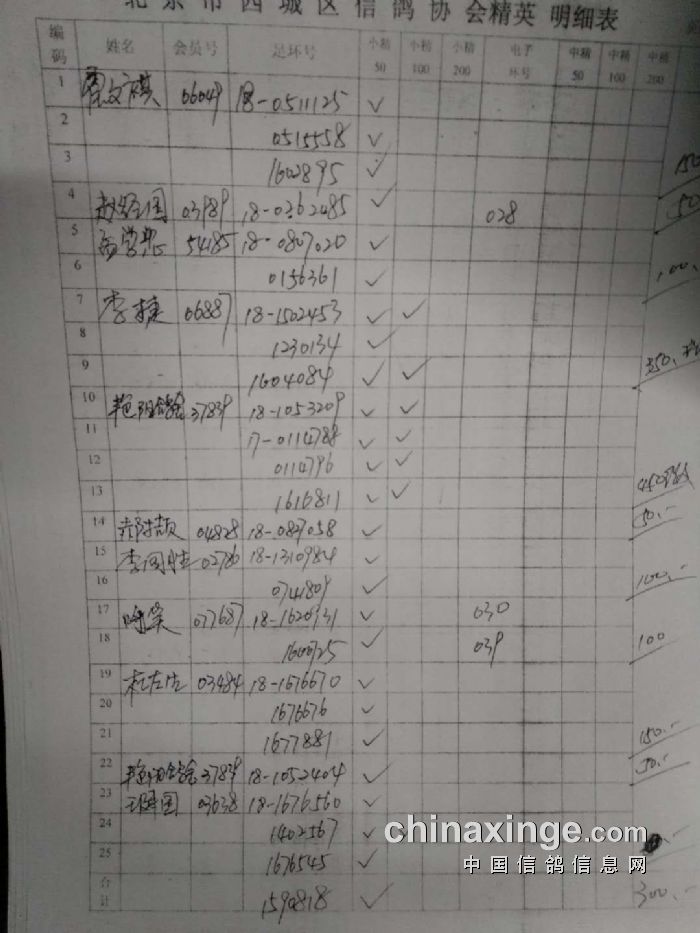 北京市西城区信鸽协会精英 明细表
编码 姓名 会员号 足环号 小精50 小精100 小精200 电子环号 中精50 中精100 中精200
1 06049 18-0511125 ✓
2 0515558 ✓
3 1602895 ✓ 150
4 03989 18-0362485 ✓ 028 50
5 54185 18-0807020 ✓
6 0156361 ✓ 100.
7 李捷 06887 18-1502453 ✓ ✓
8 1230134 ✓
9 1604084 ✓ ✓ 350.
10 37839 18-1053209 ✓ ✓
11 17-0114788 ✓ ✓
12 0114796 ✓ ✓
13 1616811 ✓ ✓ 450
14 04828 18-0827058 ✓ 50.-
15 李同胜 02786 18-1310984 ✓
16 0741809 ✓ 100.-
17 077687 18-1620931 ✓ 030
18 1600725 ✓ 039 100
19 03484 18-1676670 ✓
20 1676676 ✓
21 1677881 ✓ 150.-
22 37839 18-1052404 ✓ 50.-
23 03638 18-1676560 ✓
24 1402567 ✓
25 1676545 ✓
合计 1590818 ✓ 300.-
chinaxinge.com
中国信鸽信息网